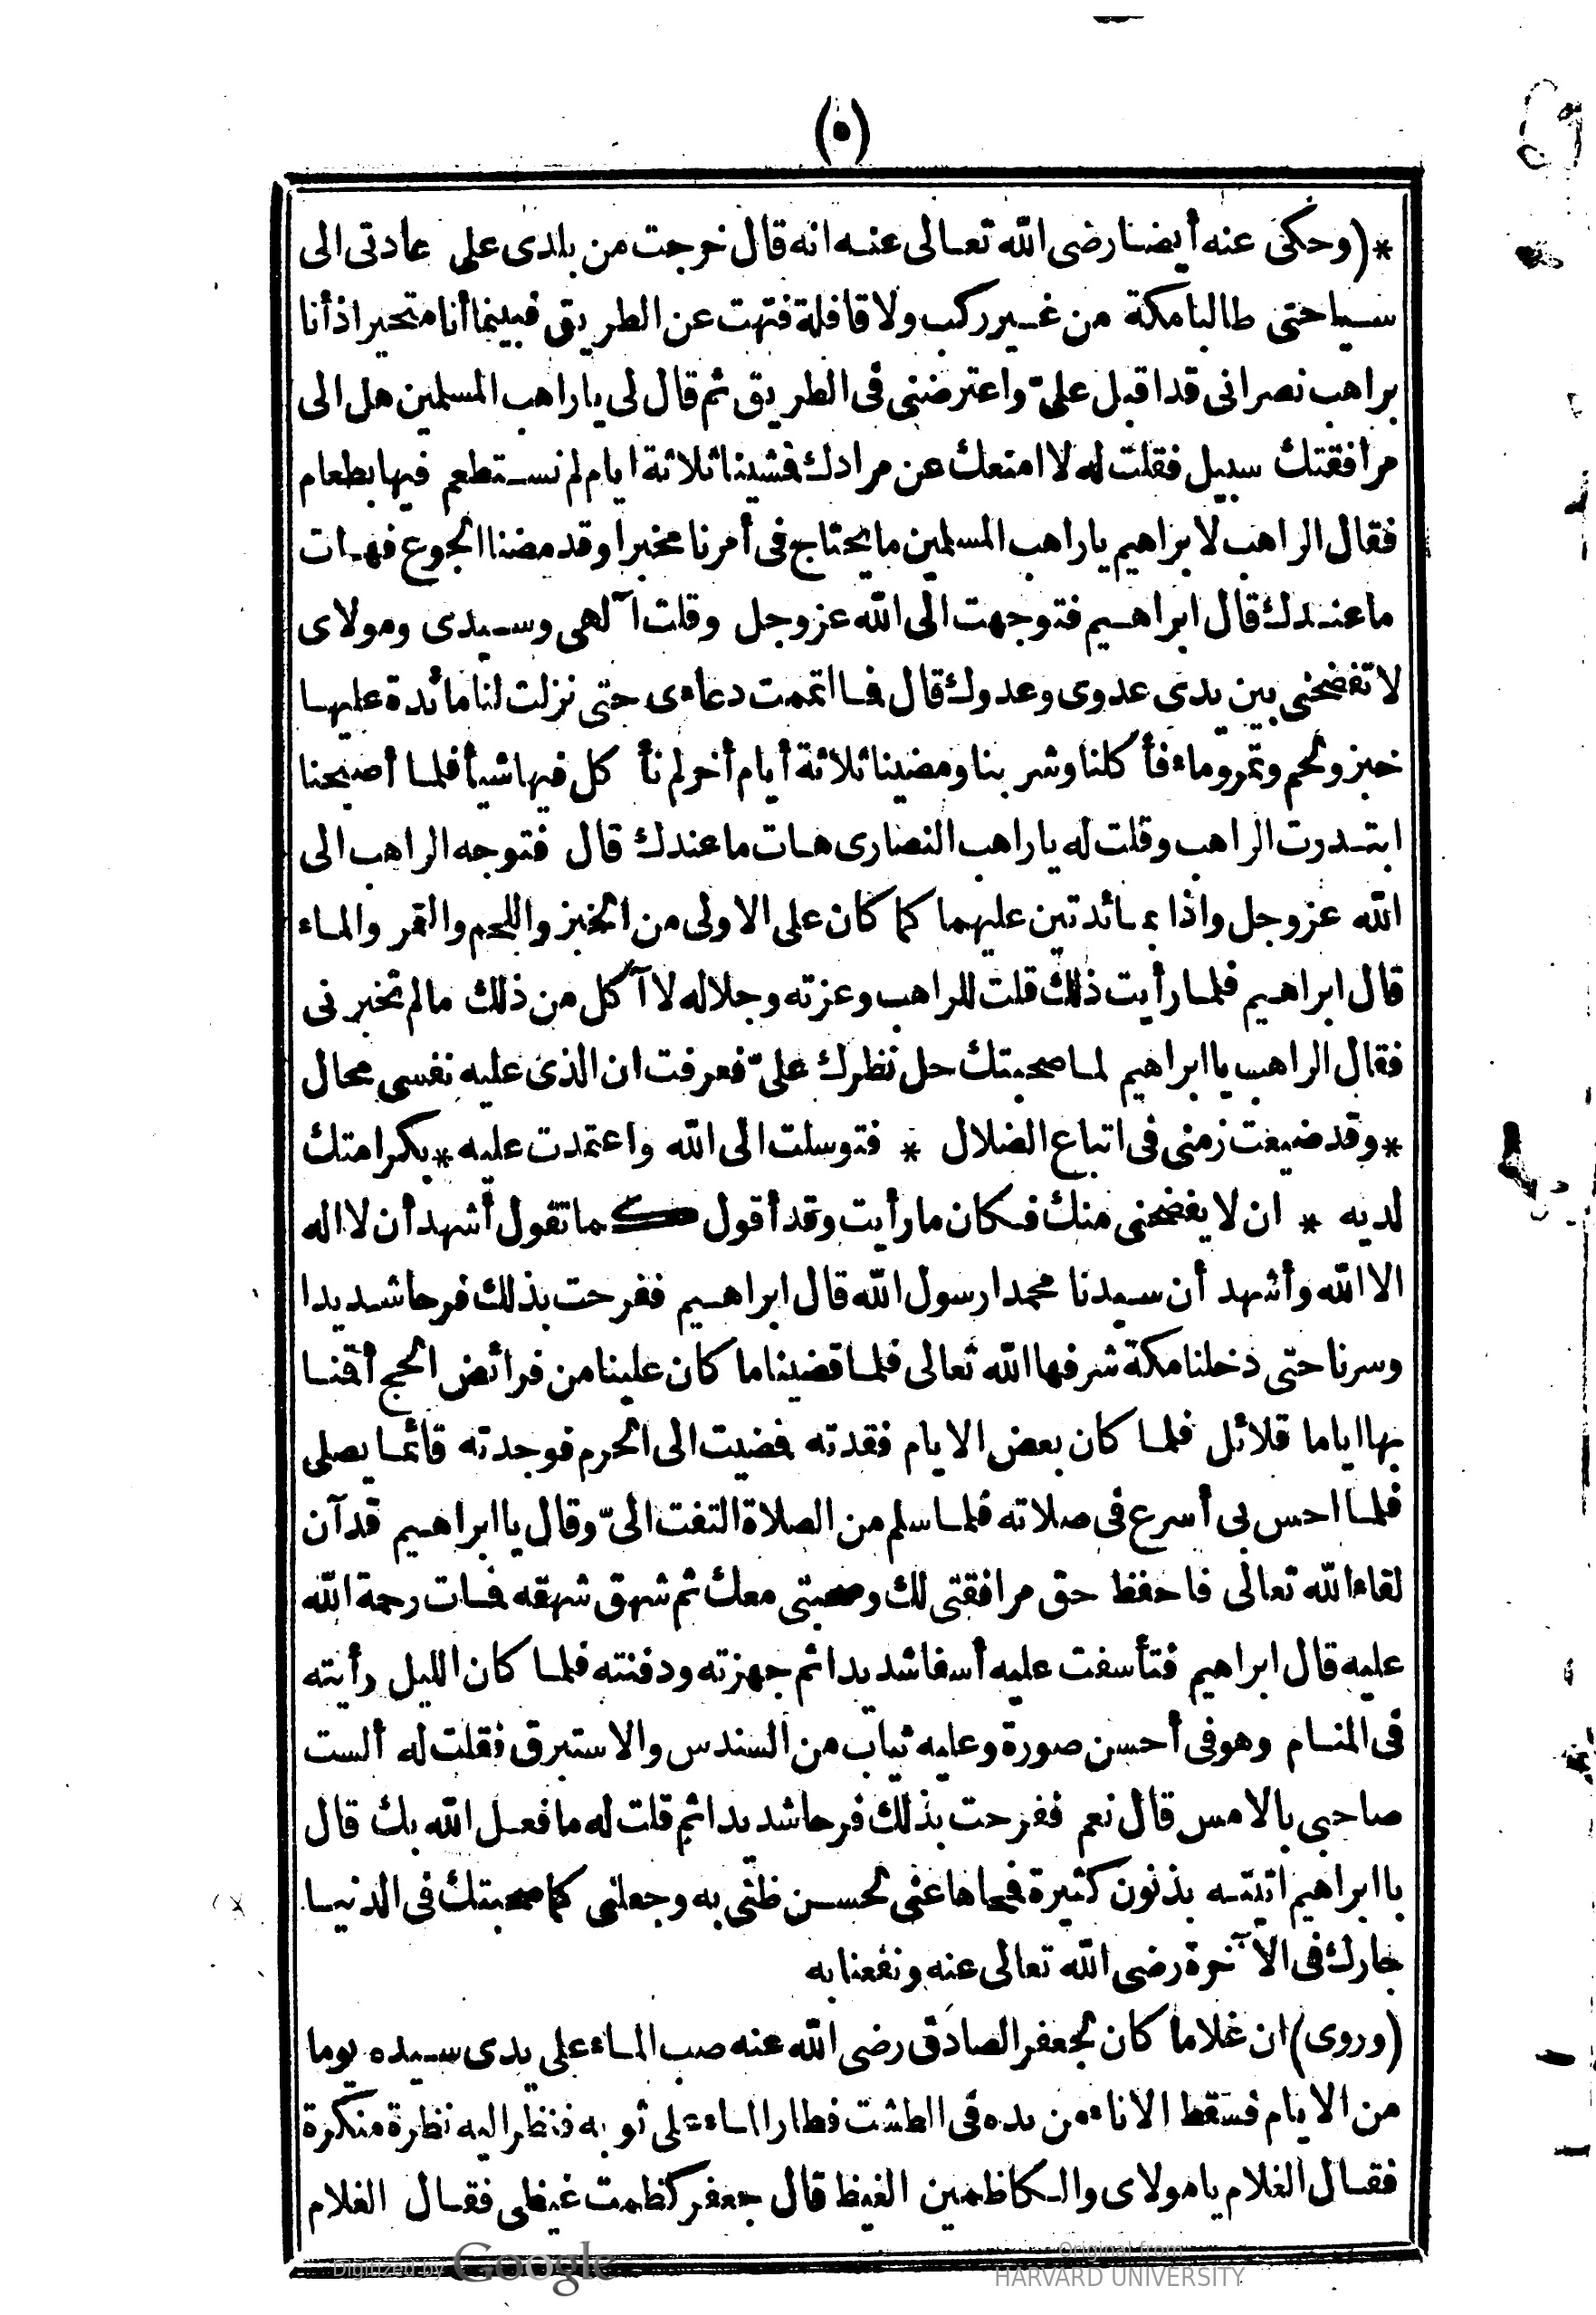 (٥)
*(وحكى عنه أيضا رضى الله تعالى عنه انه قال خرجت من بلدى على عادتى الى
سياحتى طالبا مكة من غير ركب ولا قافلة فتهت عن الطريق فبينما أنا متحير اذ أنا
براهب نصرانى قد اقبل علىّ واعترضنى فى الطريق ثم قال لى يا راهب المسلمين هل الى
مرافقتك سبيل فقلت له لا امنعك عن مرادك فمشينا ثلاثة ايام لم نستطعم فيها بطعام
فقال الراهب لابراهيم يا راهب المسلمين ما يحتاج فى أمرنا مخبرا وقد مضنا الجوع فهات
ما عندك قال ابراهيم فتوجهت الى الله عز وجل وقلت آلهى وسيدى ومولاى
لا تفضحنى بين يدى عدوى وعدوك قال فما اتممت دعاءى حتى نزلت لنا مائدة عليها
خبز ولحم وتمر وماء فأكلنا وشربنا ومضينا ثلاثة أيام أخر لم نأكل فيها شيأ فلما أصبحنا
ابتدرت الراهب وقلت له يا راهب النصارى هات ما عندك قال فتوجه الراهب الى
الله عز وجل واذا بمائدتين عليهما كما كان على الاولى من الخبز واللحم والتمر والماء
قال ابراهيم فلما رأيت ذلك قلت للراهب وعزته وجلاله لا آكل من ذلك ما لم تخبرنى
فقال الراهب يا ابراهيم لما صحبتك حل نظرك علىّ فعرفت ان الذى عليه نفسى محال
* وقد ضيعت زمنى فى اتباع الضلال * فتوسلت الى الله واعتمدت عليه * بكرامتك
لديه * ان لا يفضحنى منك فكان ما رأيت وقد أقول كما تقول أشهد أن لا اله
الا الله وأشهد أن سيدنا محمدا رسول الله قال ابراهيم ففرحت بذلك فرحا شديدا
وسرنا حتى دخلنا مكة شرفها الله تعالى فلما قضينا ما كان علينا من فرائض الحج أقمنا
بها اياما قلائل فلما كان بعض الايام فقدته فمضيت الى الحرم فوجدته قائما يصلى
فلما احس بى أسرع فى صلاته فلما سلم من الصلاة التفت الىّ وقال يا ابراهيم قد آن
لقاء الله تعالى فاحفظ حق مرافقتى لك وصحبتى معك ثم شهق شهقه فمات رحمة الله
عليه قال ابراهيم فتأسفت عليه أسفا شديدا ثم جهزته ودفنته فلما كان الليل رأيته
فى المنام وهو فى أحسن صورة وعليه ثياب من السندس والاستبرق فقلت له ألست
صاحبى بالامس قال نعم ففرحت بذلك فرحا شديدا ثم قلت له ما فعل الله بك قال
يا ابراهيم اتيته بذنون كثيرة فمحاها عنى لحسن ظنى به وجعلنى كما صحبتك فى الدنيا
جارك فى الآخرة رضى الله تعالى عنه ونفعنا به
(وروى) ان غلاما كان لجعفر الصادق رضى الله عنه صب الماء على يدى سيده يوما
من الايام فسقط الاناء من يده فى الطشت فطار الماء على ثوبه فنظر اليه نظرة منكرة
فقال الغلام يا مولاى والكاظمين الغيظ قال جعفر كظمت غيظى فقال الغلام
Digitized by Google
Original from
HARVARD UNIVERSITY